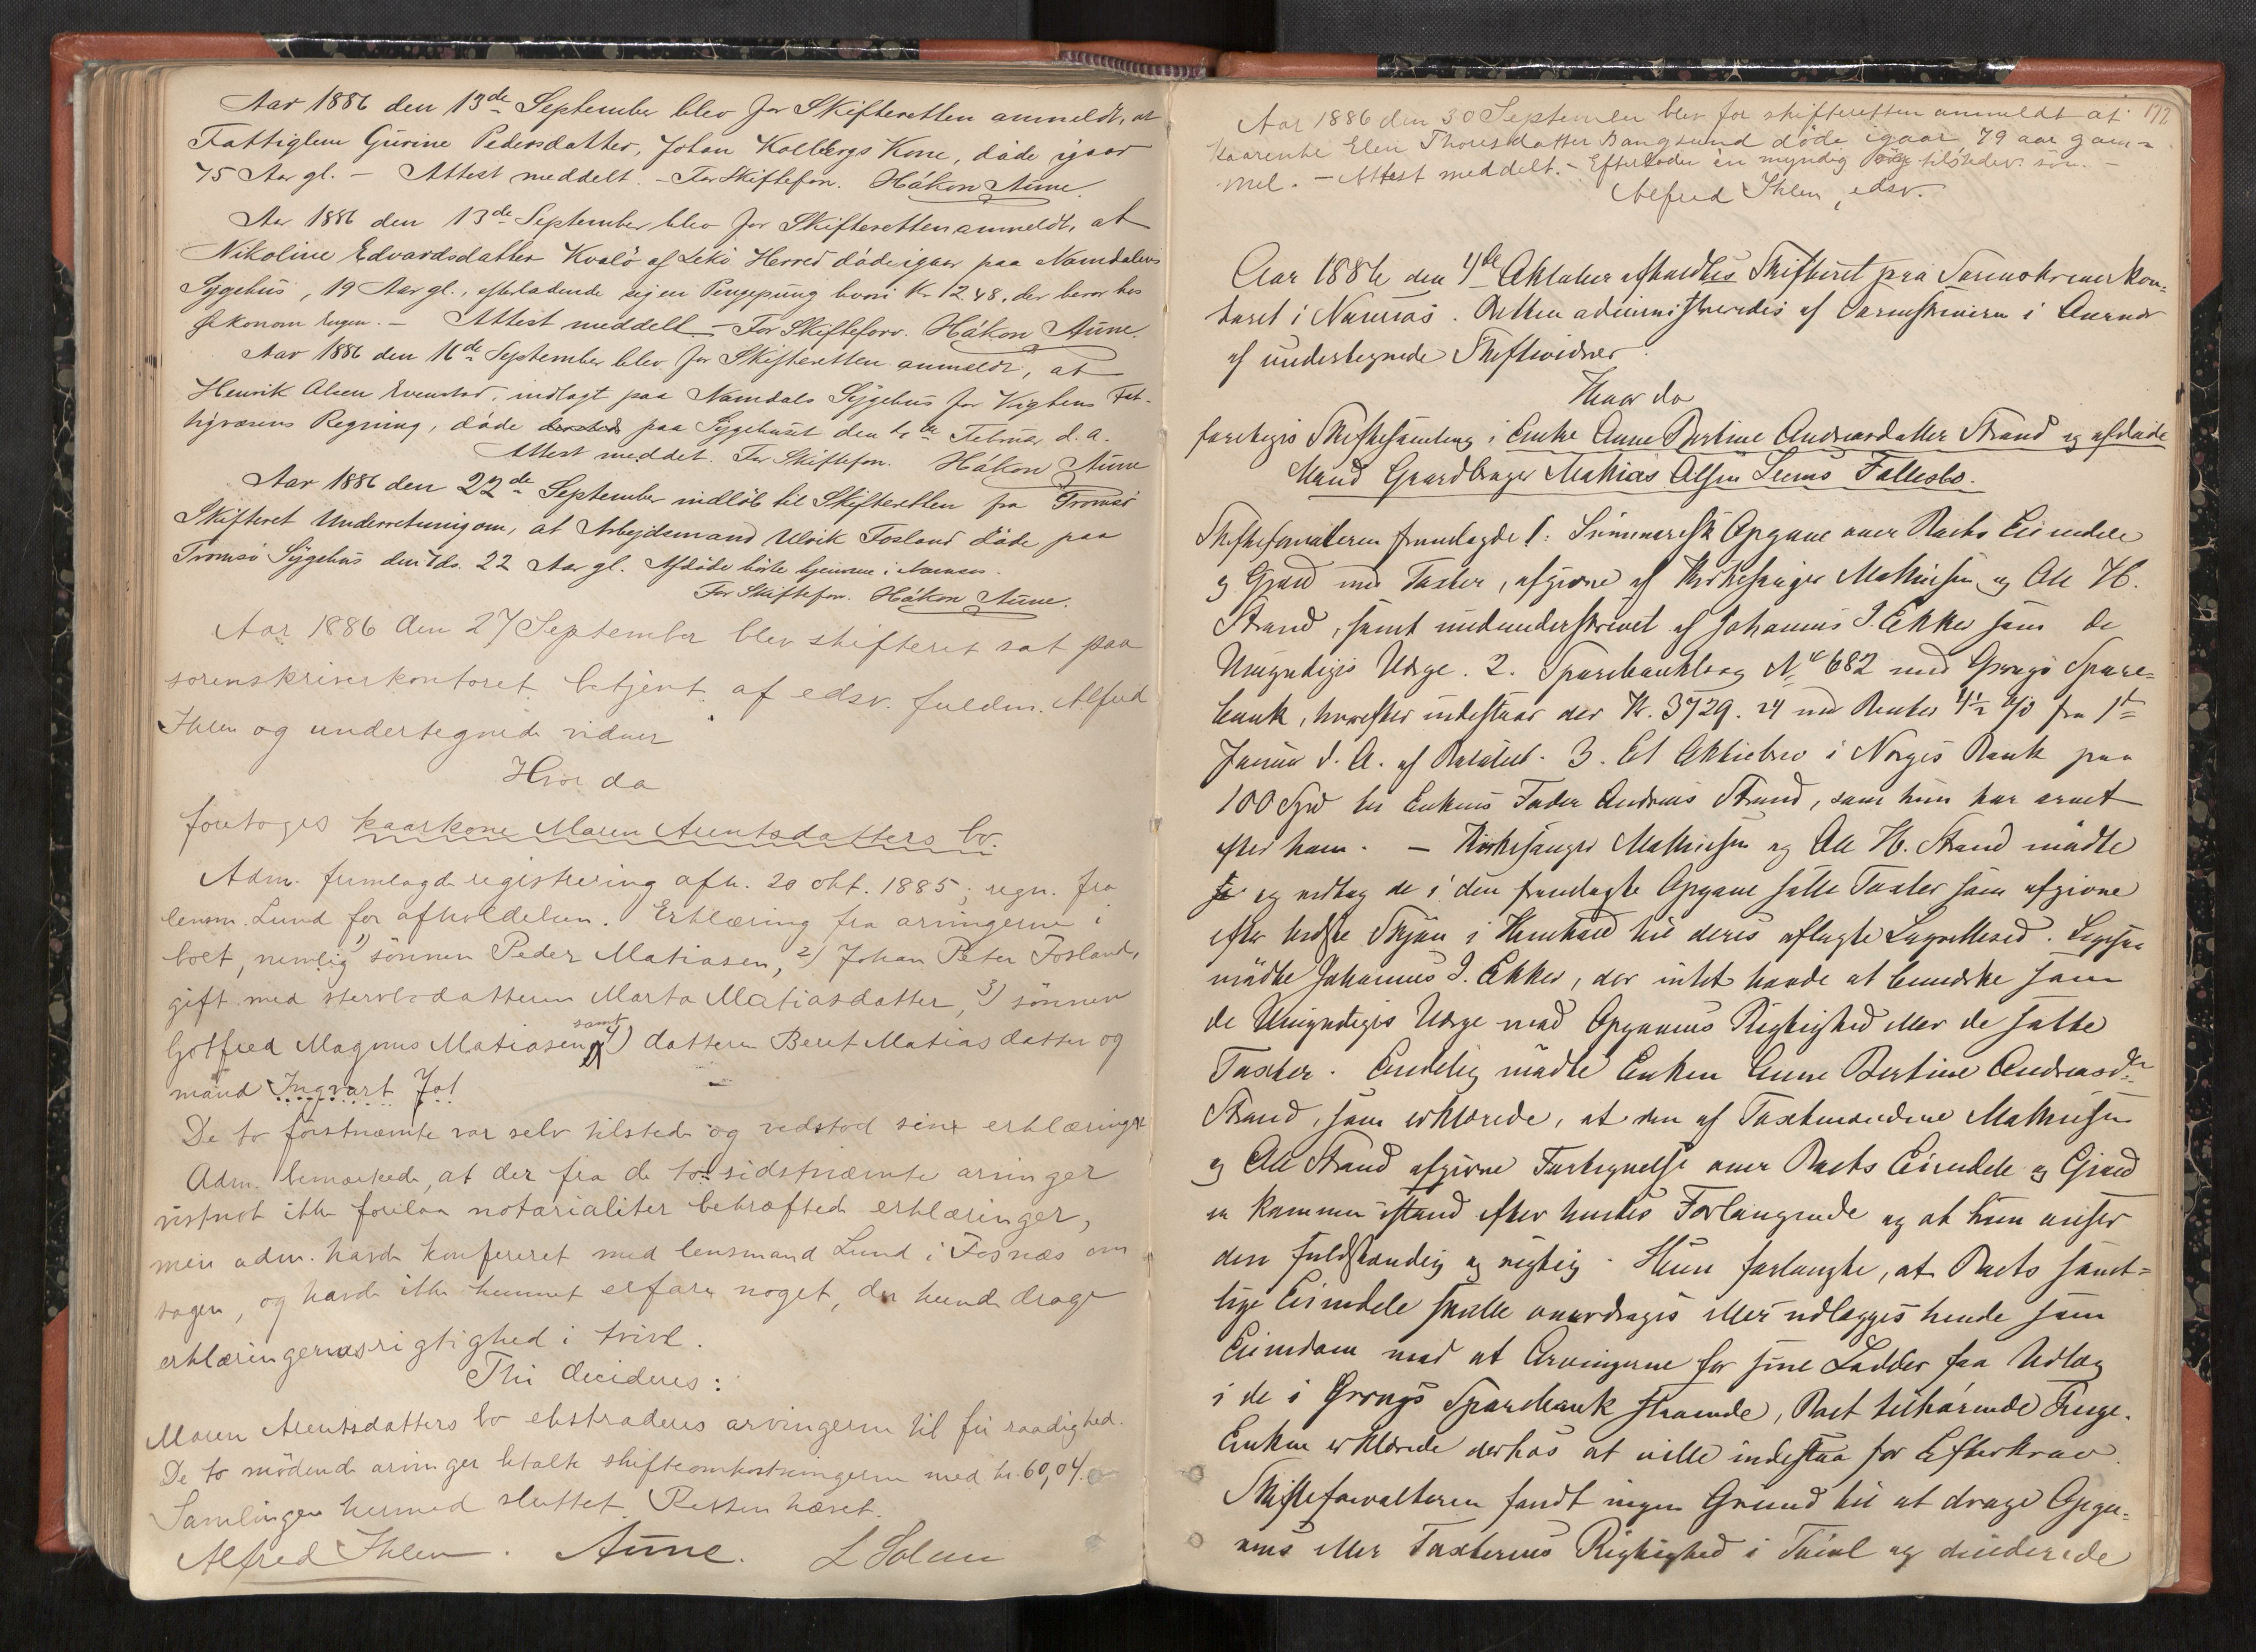 Aar 1886 den 13de September blev for Skifteretten anmeldt, at
Fattiglem Gurine Pedersdatter, Johan Kolbergs Kone, døde igaar
75 Aar gl. — Attest meddelt. — For Skiftefov. Håkon Aune.
Aar 1886 den 13de September blev for Skifteretten anmeldt, at
Nikoline Edvardsdatter Kvalö af Lekö Herred døde igaar paa Namdalens
Sygehus, 19 Aar gl., efterladende sig en Pengepung hvori Kr. 12.48, der beror hos
Økonom Engen. — Attest meddelt — For Skifteforv. Håkon Aune.
Aar 1886 den 16de September blev for Skifteretten anmeldt, at
Henrik Olsen Evenstad, indlagt paa Namdals Sygehus for Vigtens Fat-
tigvæsens Regning, døde dersteds paa Sygehuset den Februar d. a.
Attest meddelt. For Skiftefov. Håkon Aune
Aar 1886 den 22de September indløb til Skifteretten fra Tromsö
Skifteret Underretning om, at Arbejdsmand Ulrik Fosland døde paa
Tromsö Sygehus den 7ds. 22 Aar gl. Afdøde hørte hjemme i Namsos.
For Skiftefov. Håkon Aune.
Aar 1886 den 27 September blev skifteret sat paa
sorenskriverkontoret betjent af edsv. fuldm. Alfred
Ihlen og undertegnede vidner
Hvor da
foretoges kaarkone Maren Arentsdatters bo.
Adm. fremlagde registrering afh. 20 okt. 1885; regn. fra
lensm. Lund for afholdelsen. Erklæring fra arvingerne i
boet, nemlig 1) sønnen Peder Matiasen, 2) Johan Peter Fosland,
gift med stervbodatteren Marta Matiasdatter, 3) sønnen
Gotfred Magnus Matiasen samt 4) datteren Berit Matiasdatter og
mand Ingvart Jo!
De to førstnævnte var selv tilstede og vedstod sine erklæringer
Adm. bemærkede, at der fra de to sidstnævnte arvinger
vistnok ikke forelaa notarialiter bekræftede erklæringer,
men adm. havde konfereret med lensmand Lund i Fosnæs om
sagen, og havde ikke kunnet erfare noget, der kunde drage
erklæringernes rigtighed i tvivl.
Thi decideres:
Maren Arentsdatters bo ekstraderes arvingerne til fri raadighed.
De to mødende arvinger betalte skifteomkostningerne med kr. 60,04.
Samlingen hermed sluttet. Retten hævet.
Alfred Ihlen. Aune. L Solum
172
Aar 1886 den 30 September blev for skifteretten anmeldt at
kaarenke Elen Thoresdatter Bangsund døde igaar 79 aar gam-
mel. — Attest meddelt. — Efterlader én myndig tilstedev. søn. —
Alfred Ihlen, edsv.
Aar 1886 den 4de Oktober afholdtes Skifteret paa Sorenskriverkon-
toret i Namsos. Retten administreredes af Sorenskriveren i Overvær
af undertegnede Skiftevidner.
Hvor da
foretoges Skiftesamling i Enke Anne Bertine Andreasdatter Strand og afdøde
Mand Gaardbruger Mathias Olsen Seems Fællesbo.
Skifteforvalteren fremlagde 1. Summarisk Opgave over Boets Eiendele
og Gjæld med Taxter, afgivne af Kirkesanger Mathisen og Ole H.
Strand, samt medunderskrevet af Johannes I. Ekker som de
Umyndiges Værge. 2. Sparebankbog No 682 med Grongs Spare-
bank, hvorefter indestaar der Kr. 3729.24 med Renter 4½ % fra 1ste
Januar d. A. af Beløbet. 3. Et Aktiebrev i Norges Bank paa
100 Spd til Enkens Fader Andreas Strand, som hun har arvet
efter ham. — Kirkesanger Mathisen og Ole H. Strand mødte
og vedtog de i den fremlagte Opgave satte Taxter som afgivne
efter bedste Skjøn i Henhold til deres aflagte Lagrettesed. Ligesaa
mødte Johannes I. Ekker, der intet havde at bemærke som
de Umyndiges Værge mod Opgavens Rigtighed eller de satte
Taxter. Endelig mødte Enken Anne Bertine Andreasdr
Strand, som erklærede, at den af Taxtmændene Mathisen
og Ole Strand afgivne Fortegnelse over Boets Eiendele og Gjæld
er kommen istand efter hendes Forlangende og at hun anser
den fuldstændig og rigtig. Hun forlangte, at Boets samt-
lige Eiendele skulle overdrages eller udlægges hende som
Eiendom mod at Arvingerne for sine Lodder faa Udlæg
i de i Grongs Sparebank staaende, Boet tilhørende Penge.
Enken erklærede derhos at ville indestaa for Efterkrav.
Skifteforvalteren fandt ingen Grund til at drage Opga-
vens eller Taxternes Rigtighed i Tvivl og deciderede